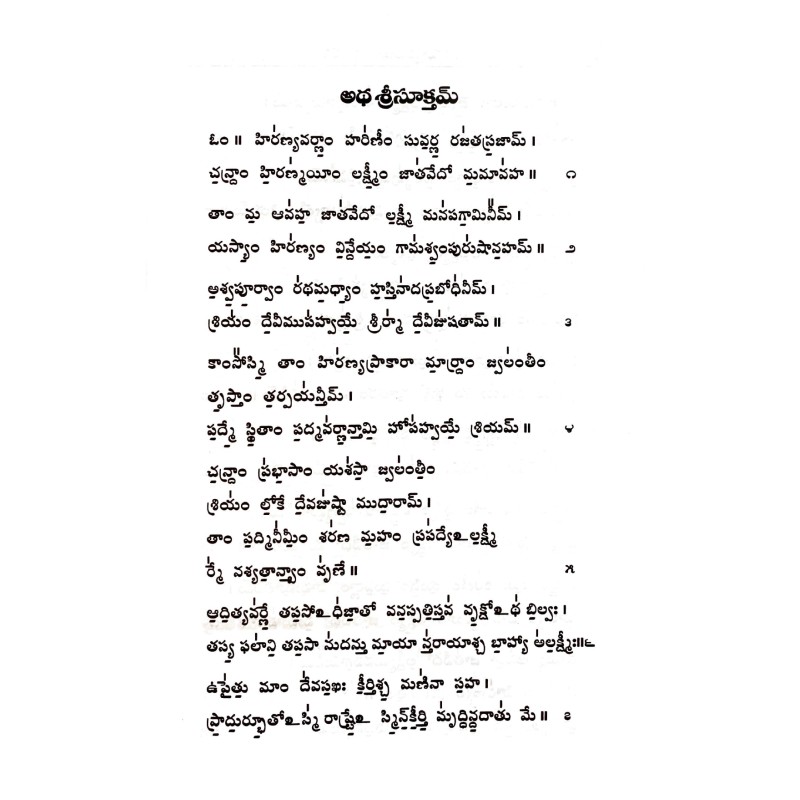 అథ శ్రీసూక్తమ్
ఓం॥ హిర॑ణ్యవర్ణాం॒ హరి॑ణీం సువ॒ర్ణ రజ॑తప్ర॒జామ్।
చ॒న్ద్రాం హి॒రణ్మ॑యీం లక్ష్మీం॒ జాత॑వేదో మ॒మావ॑హ॥ ౧
తాం మ॒ ఆవ॑హ॒ జాత॑వేదో ల॒క్ష్మీ మన॑పగా॒మినీ᳚మ్।
యస్యాం॒ హిర॑ణ్యం వి॒న్దేయం॒ గామశ్వం॒పురు॑షాన॒హమ్॥ ౨
అ॒శ్వ॒పూ॒ర్వాం ర॑థమ॒ధ్యాం హ॒స్తినా॑దప్ర॒బోధి॑నీమ్।
శ్రియం॑ దే॒వీముప॑హ్వయే॒ శ్రీర్మా॑ దే॒వీజు॑షతామ్॥ ౩
కాంసో᳚స్మి॒ తాం హిర॑ణ్యప్రాకారా మా॒ర్ద్రాం జ్వలం॑తీం
తృ॒ప్తాం త॒ర్పయ॑న్తీమ్।
ప॒ద్మే॒ స్థి॒తాం ప॒ద్మవ॑ర్ణా॒న్తామి॒ హోప॑హ్వయే॒ శ్రియమ్॥ ౪
చ॒న్ద్రాం ప్ర॑భా॒సాం య॒శసా॒ జ్వలం॑తీం॒
శ్రియం॑ లో॒కే దే॒వజు॑ష్టా ముదా॒రామ్।
తాం ప॒ద్మినీ॑మీం॒ శర॑ణ మ॒హం ప్రప॑ద్యేఽల॒క్ష్మీ
ర్మే॑ నశ్యతా॒న్త్వాం వృ॑ణే॥ ౫
ఆ॒ది॒త్యవ॑ర్ణే॒ తప॒సోఽధి॑జా॒తో వన॒స్పతి॒స్తవ॑ వృ॒క్షోఽథ॑ బి॒ల్వః।
తస్య॒ ఫలా॑ని॒ తప॒సా ను॑దన్తు మా॒యా న్త॑రాయా॒శ్చ బా॒హ్యా అ॑ల॒క్ష్మీః॥౬
ఉపై॑తు॒ మాం దే॑వస॒ఖః కీ॒ర్తిశ్చ॒ మణి॑నా స॒హ।
ప్రా॒దు॒ర్భూ॒తోఽస్మి॑ రాష్ట్రే॒ఽ స్మి॒న్‌కీ॒ర్తి॒ మృ॑ద్ధింద॒దాతు॑ మే॥ ౭